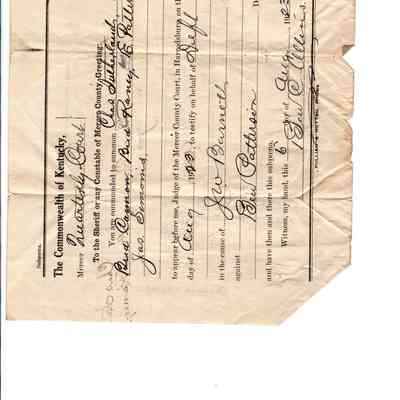 Subpoena.
The Commonwealth of Kentucky,
Mercer Quarterly Court
To the Sheriff or any Constable of Mercer County, Greeting:
You are commanded to summon Chas Sutherland,
Bud Cannon, Bud Raney, E Patter
Jas. Simms.
to appear before me, Judge of the Mercer County Court, in Harrodsburg on the
day of Aug 1923, to testify on behalf of Deft
in the cause of J W Barnett
against Ben Patterson
and have then and there this subpoena.
Witness, my hand, this 6 day of Aug 1923
C. Allin